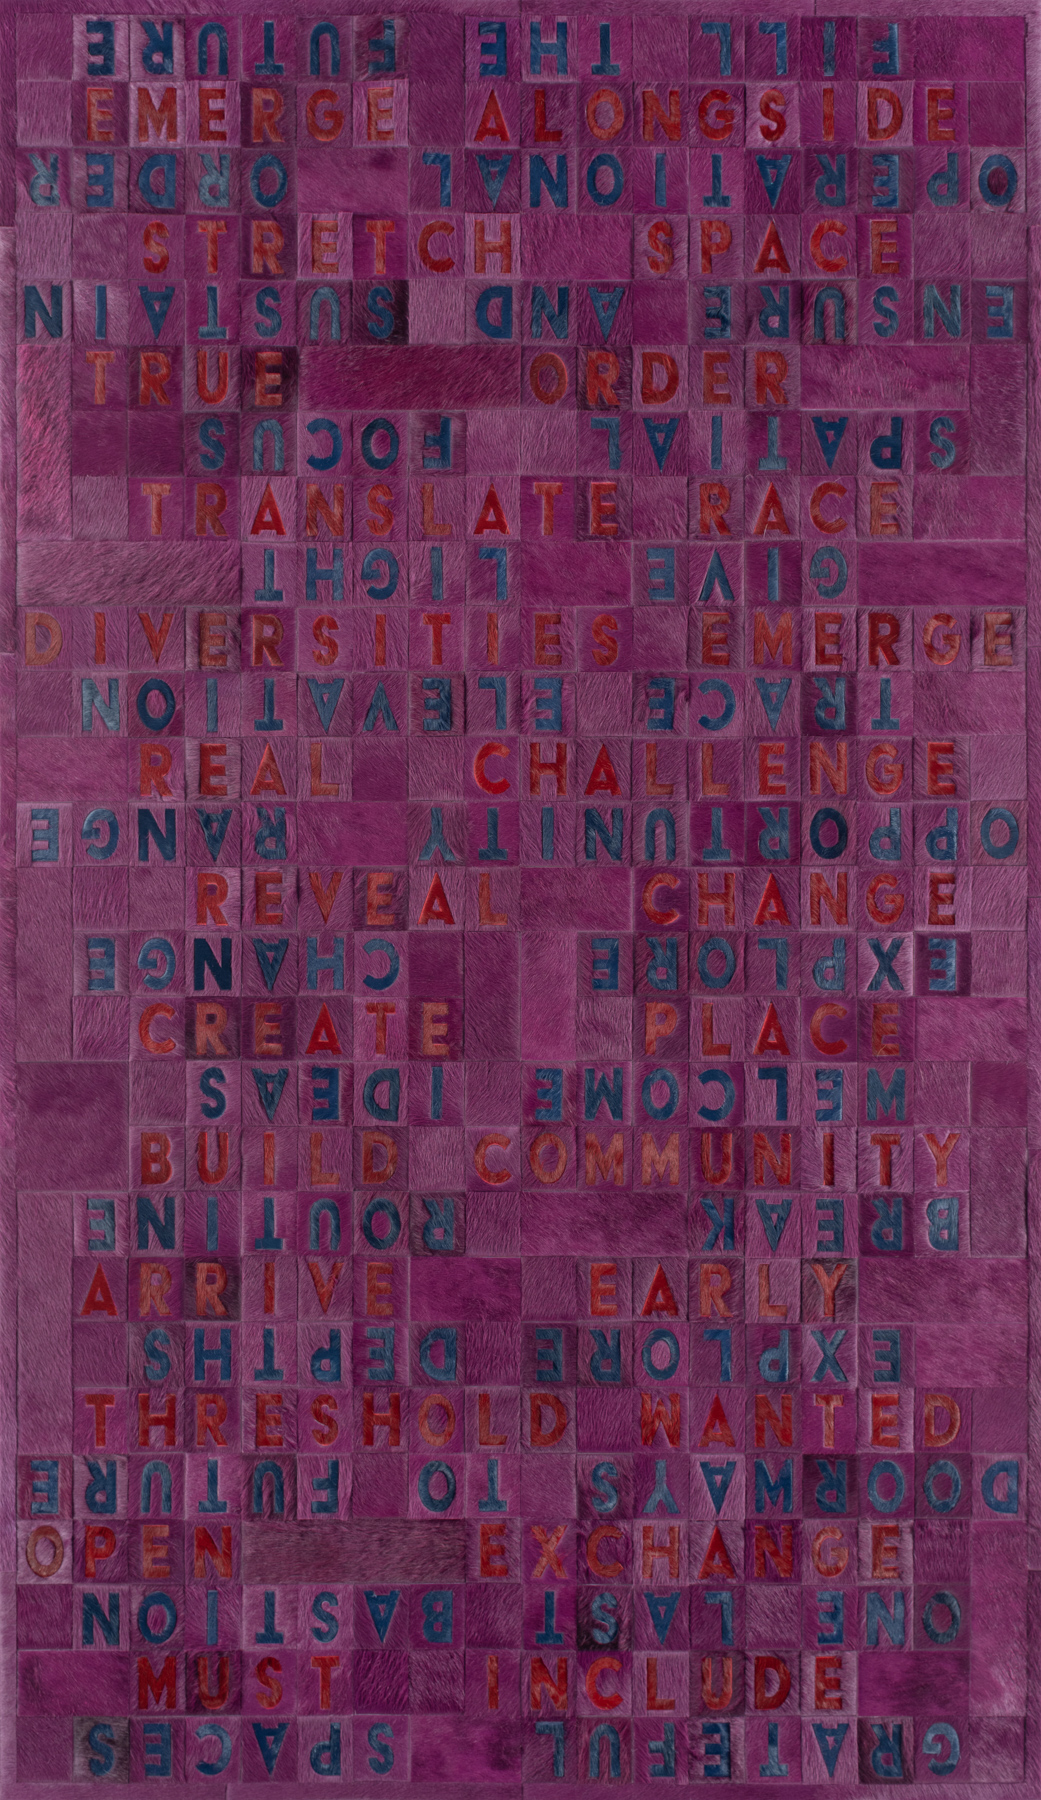 FILL THE FUTURE
EMERGE ALONGSIDE
OPERATIONAL ORDER
STRETCH SPACE
ENSURE AND SUSTAIN
TRUE ORDER
SPATIAL FOCUS
TRANSLATE RACE
GIVE LIGHT
DIVERSITIES EMERGE
TRACE ELEVATION
REAL CHALLENGE
OPPORTUNITY RANGE
REVEAL CHANGE
EXPLORE CHANGE
CREATE PLACE
WELCOME IDEAS
BUILD COMMUNITY
BREAK ROUTINE
ARRIVE EARLY
EXPLORE DEPTHS
THRESHOLD WANTED
DOORWAYS TO FUTURE
OPEN EXCHANGE
ONE LAST BASTION
MUST INCLUDE
GRATEFUL SPACES